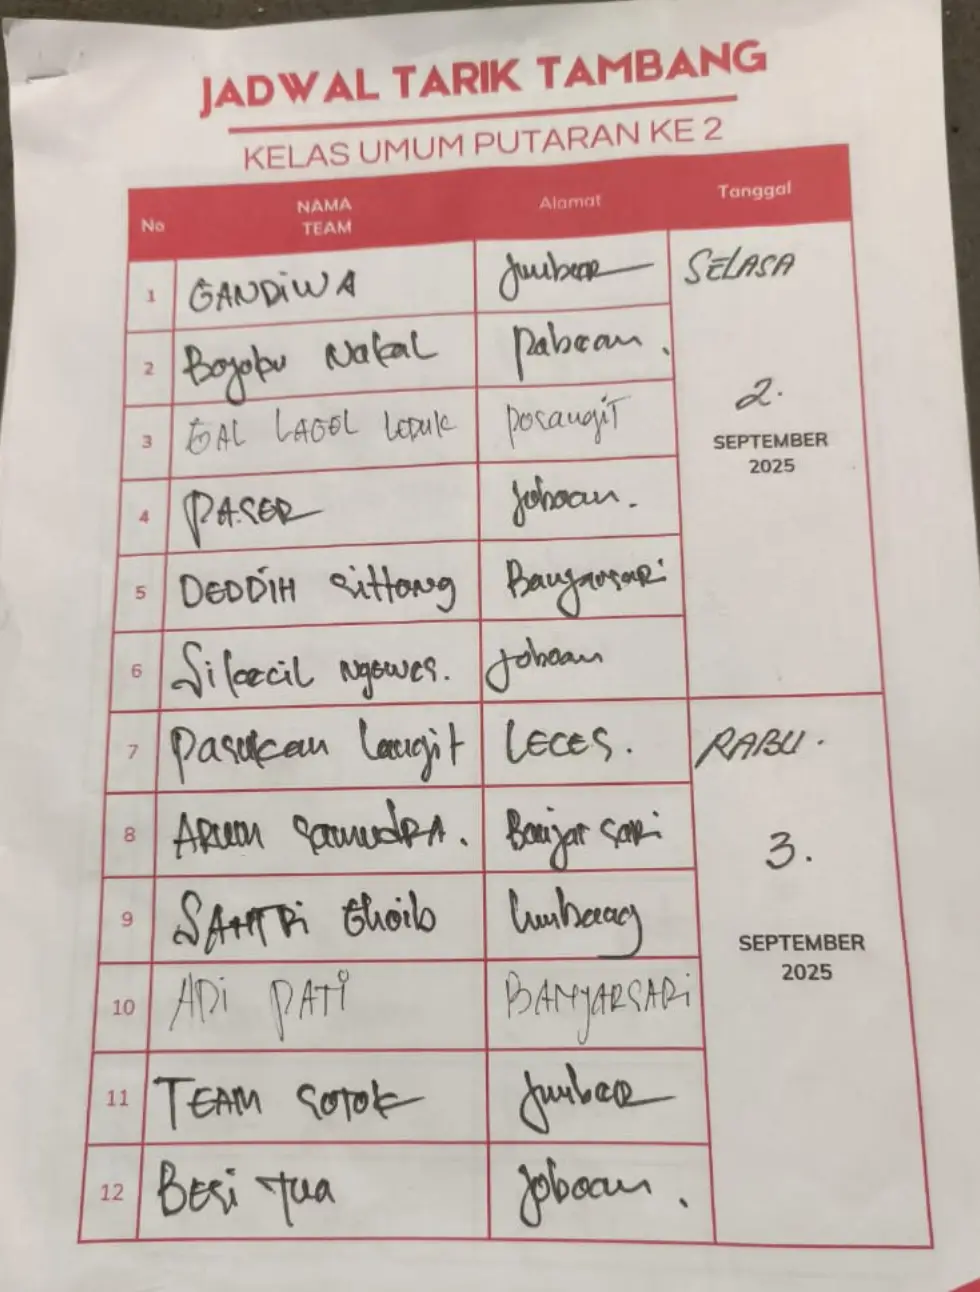 JADWAL TARIK TAMBANG
KELAS UMUM PUTARAN KE 2
No NAMA TEAM Alamat Tanggal
1 GANDiWA Jember SELASA
2 Bojoku Nakal Paboan.
3 GAL LAGEL LEDUK Posangit
2. SEPTEMBER 2025
4 PASER Joboan.
5 DEDDiH Sittong Banjarsari
6 Sikecil Ngowes. Joboan
7 Pasukan Langit LECES. RABU.
8 ARUM SamudRA. Banjar sari
3. SEPTEMBER 2025
9 SANTRi Ghoib Lumbang
10 ADi PATi BANYARSARi
11 TEAM SOTOK Jember
12 BESi TUA Joboan.